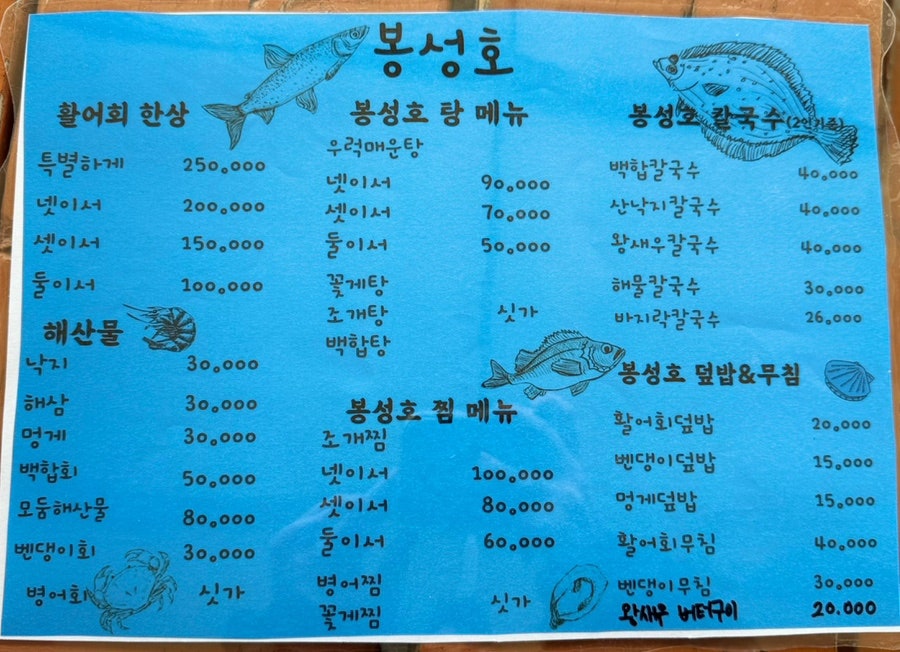 봉성호
활어회 한상
특별하게 250,000
넷이서 200,000
셋이서 150,000
둘이서 100,000
해산물
낙지 30,000
해삼 30,000
멍게 30,000
백합회 50,000
모둠해산물 80,000
벤댕이회 30,000
병어회 싯가
봉성호 탕 메뉴
우럭매운탕
넷이서 90,000
셋이서 70,000
둘이서 50,000
꽃게탕
조개탕 싯가
백합탕
봉성호 찜 메뉴
조개찜
넷이서 100,000
셋이서 80,000
둘이서 60,000
병어찜
꽃게찜 싯가
봉성호 칼국수(2인기준)
백합칼국수 40,000
산낙지칼국수 40,000
왕새우칼국수 40,000
해물칼국수 30,000
바지락칼국수 26,000
봉성호 덮밥&무침
활어회덮밥 20,000
벤댕이덮밥 15,000
멍게덮밥 15,000
활어회무침 40,000
벤댕이무침 30,000
왕새우 버터구이 20.000